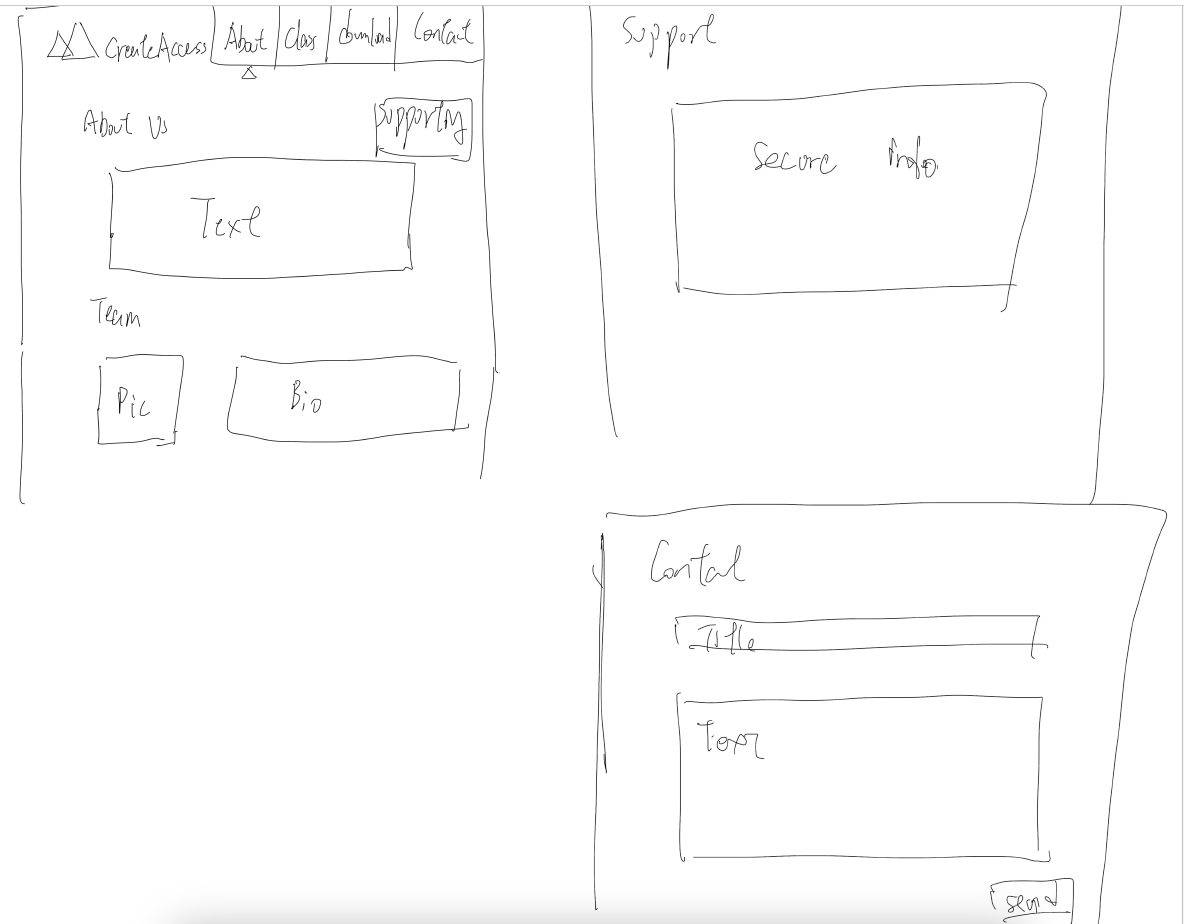 CreateAccess About Class download Contact
About Us
Supporting
Text
Team
Pic
Bio
Support
Secure Info
Contact
Title
Text
send